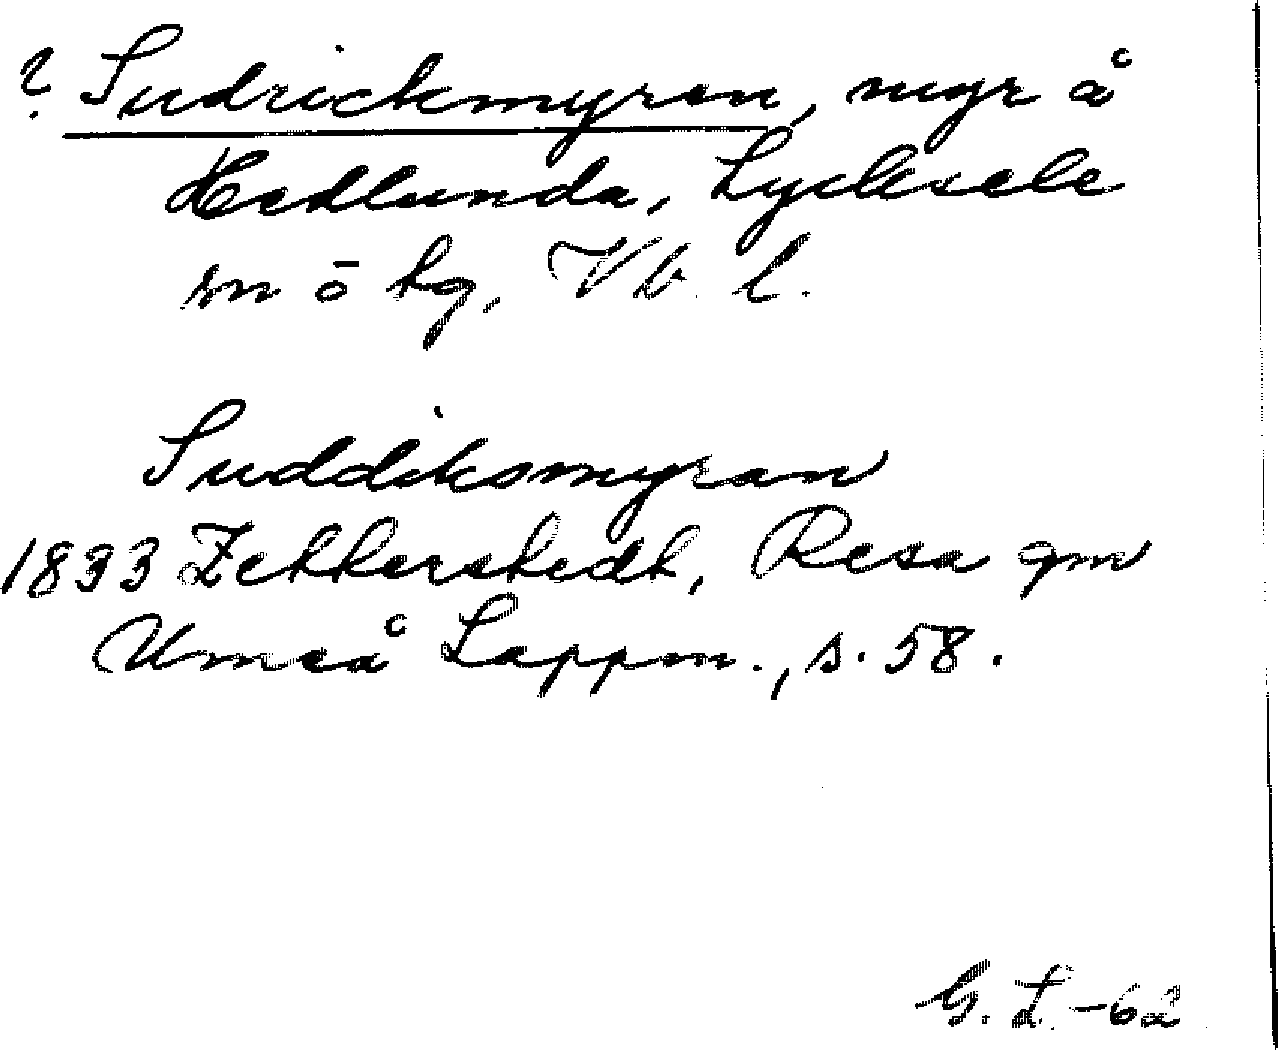 ? Sudrickmyren, myr å
Hedlunda, Lycksele
sn o tg, Vb. l.
Suddiksmyran
1833 Zetterstedt, Resa gm
Umeå Lappm., s. 58.
G. L. -62